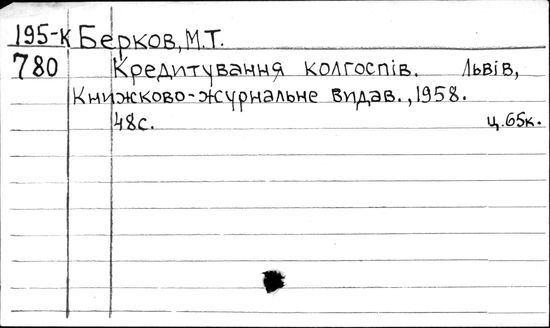 195-к Берков, М.Т.
780 Кредитування колгоспів. Львів,
Книжково-журнальне видав., 1958.
48с. ц.65к.